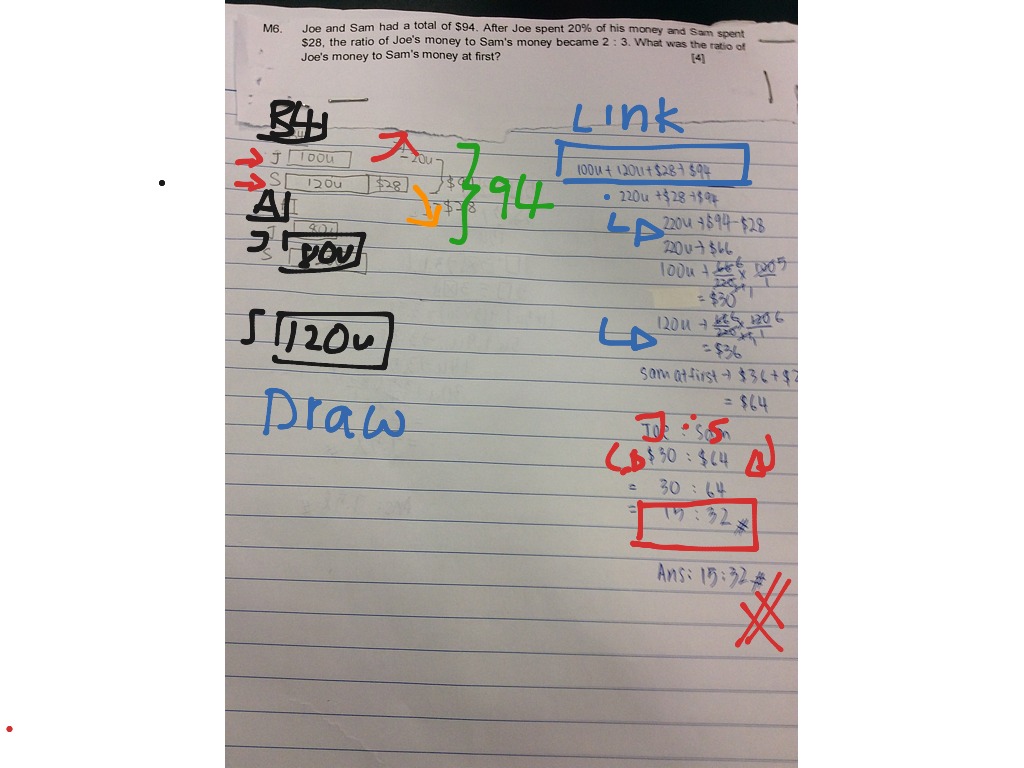 M6. Joe and Sam had a total of $94. After Joe spent 20% of his money and Sam spent
$28, the ratio of Joe's money to Sam's money became 2 : 3. What was the ratio of
Joe's money to Sam's money at first? [4]
B4
J 100u -20u
S 120u $28 $94
94
A
J 80u
-$28
J 80u
S
S 120u
Draw
Link
100u + 120u + $28 → $94
220u + $28 → $94
220u → $94 - $28
220u → $66
100u →
= $30
120u →
= $36
Sam at first → $36 + $2
= $64
J : S
Joe : Sam
$30 : $64
= 30 : 64
= 15 : 32 #
Ans: 15:32 #